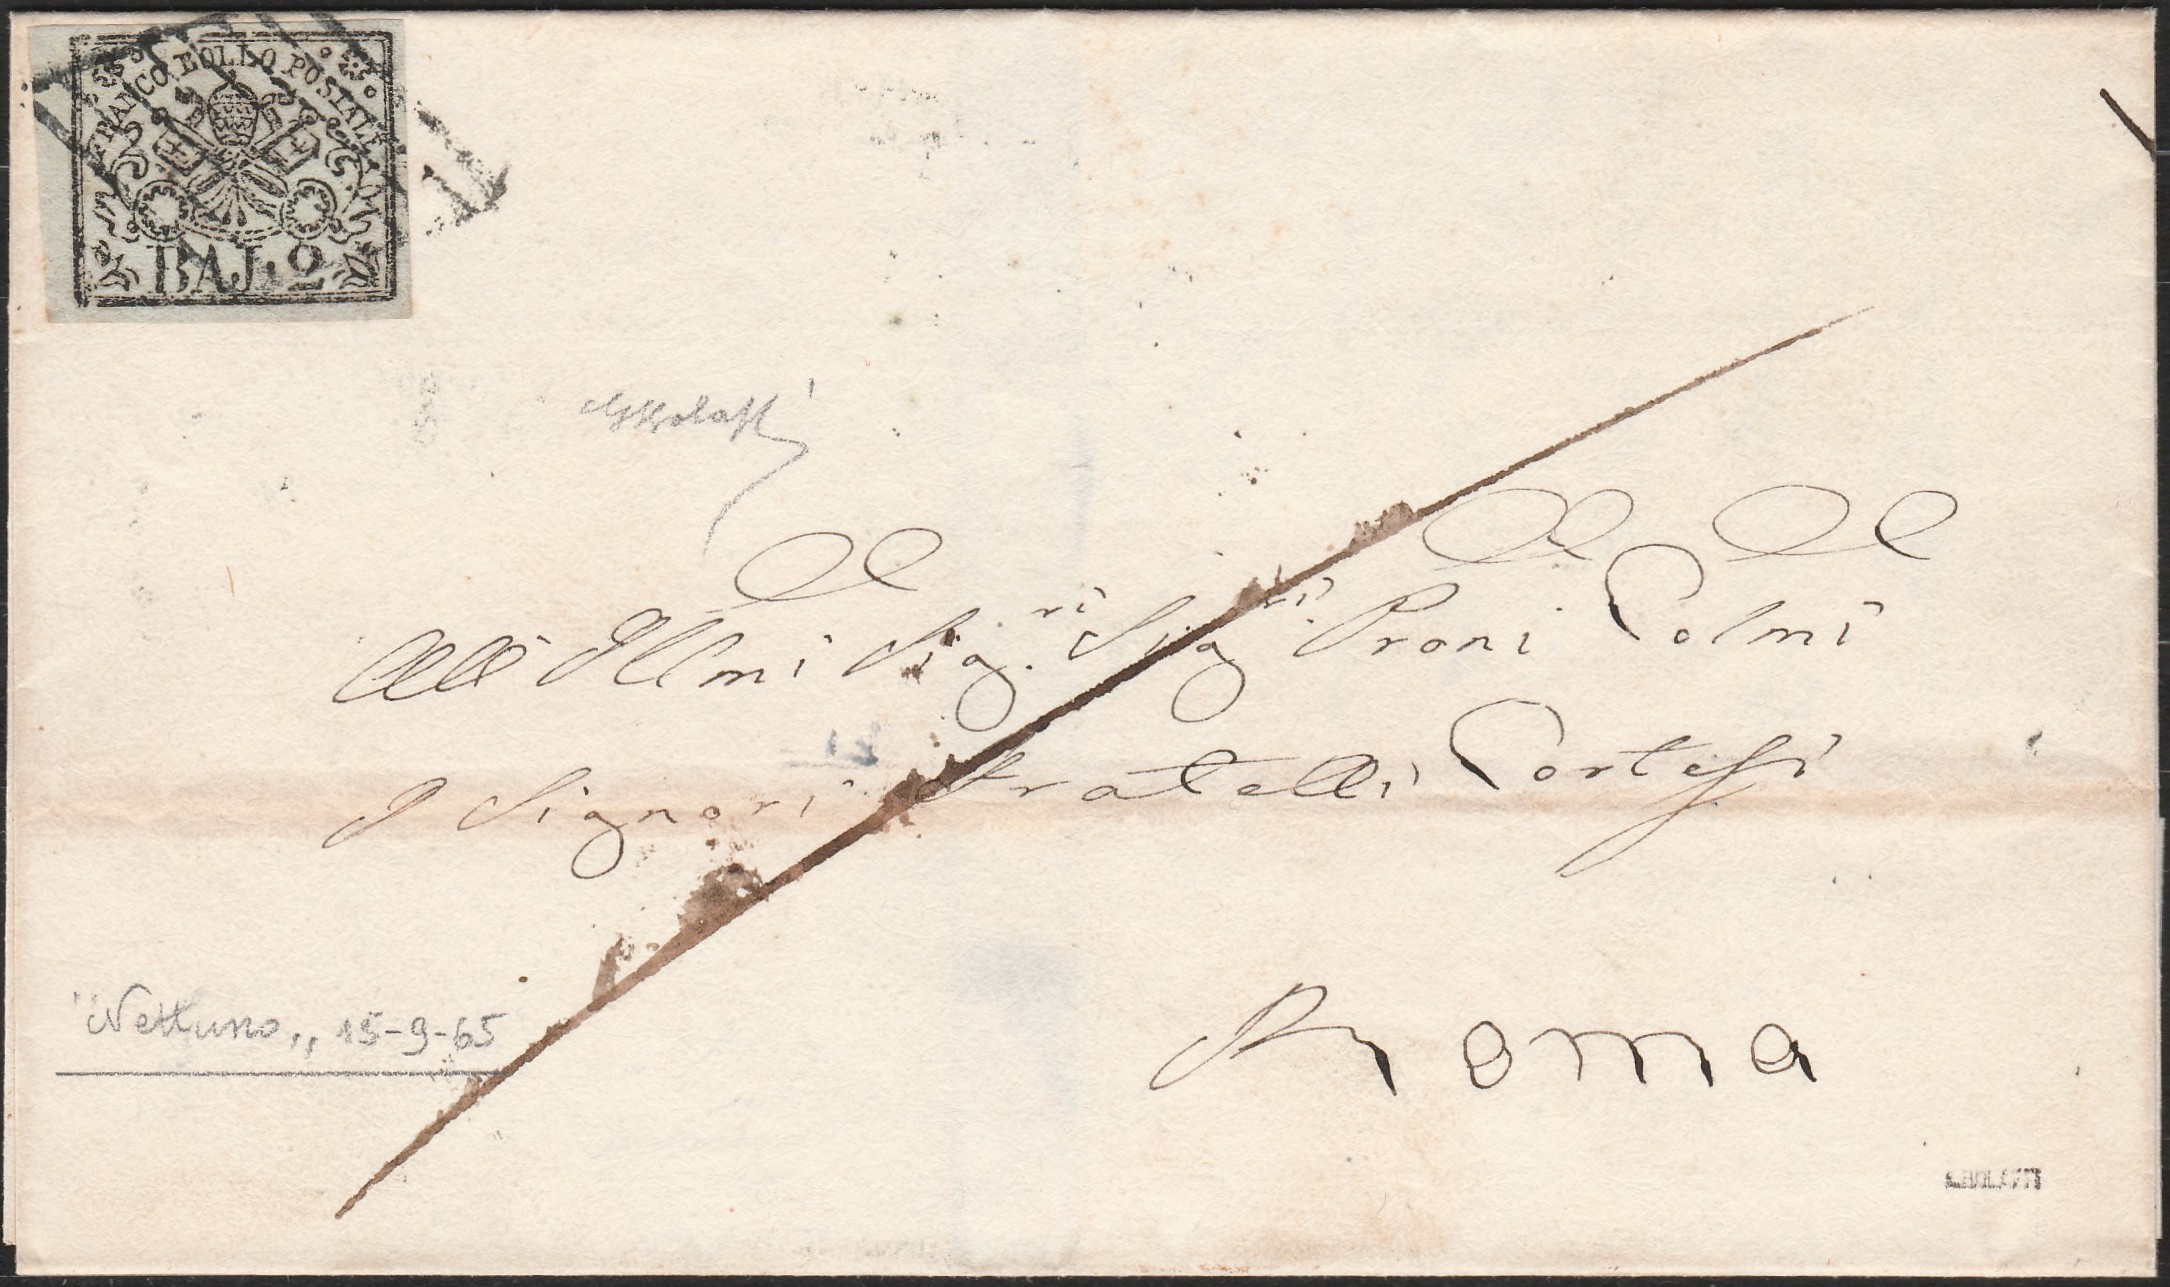 FRANCO BOLLO POSTALE
BAJ. 2
Alli Illmi Sig.ri Sigri Proni Colmi
I Signori Fratelli Cortesi
Roma
"Nettuno„ 15-9-65